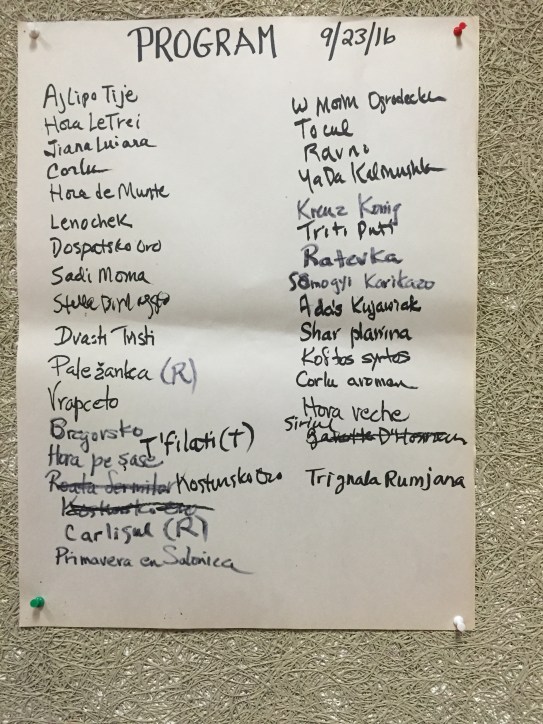 PROGRAM 9/23/16
Ajlipo Tije
Hora LeTrei
Jiana Luiana
Corlu
Hora de Munte
Lenochek
Dospatsko oro
Sadi Moma
Stella
Dvasti Tristi
Paležanka (R)
Vrapceto
Brejovsko
T'filati (T)
Hora pe șase
Kostursko Oro
Carlisul (R)
Primavera en Salonica
W Moim Ogrodecku
Tocul
Ravno
YaDa Kalinushku
Kreuz Konig
Triti Puti
Ratevka
Somogyi Karikazo
Ada's Kujawiak
Shar planina
Koftos syrtos
Corlu aroman
Hora veche
Sirul
Gavotte D'Honneur
Trignala Rumjana